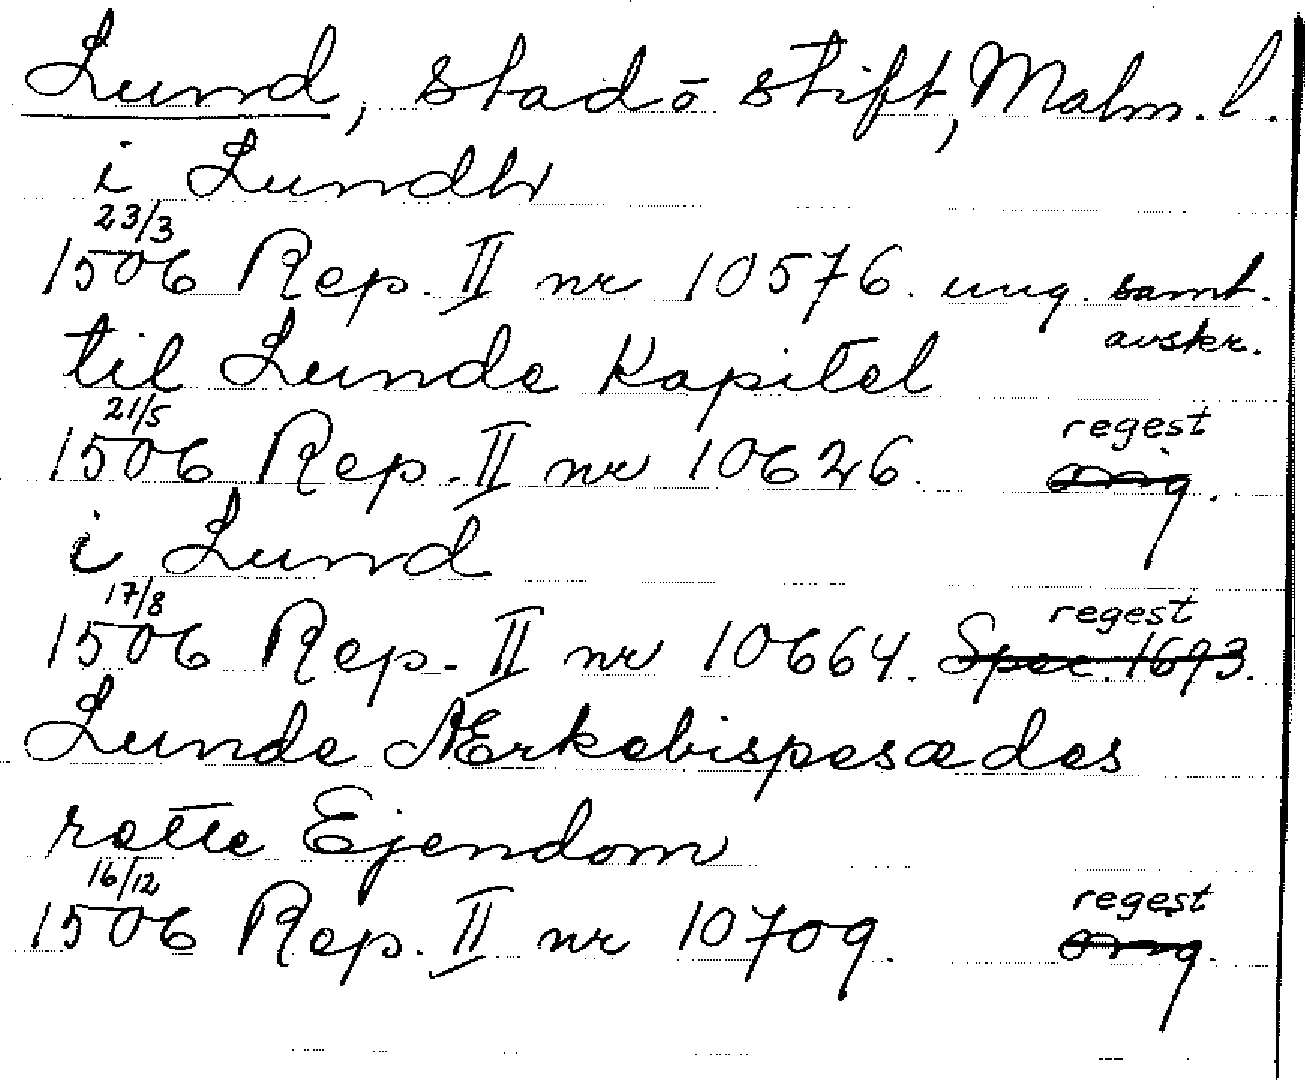 Lund, stad o stift, Malm. l.
i Lundh
23/3
1506 Rep. II nr 10576. ung. samt.
avskr.
til Lunde Kapitel
21/5 regest
1506 Rep. II nr 10626. orig.
i Lund
17/8 regest
1506 Rep. II nr 10664. Spec. 1693.
Lunde Ærkebispesædes
rette Ejendom
16/12 regest
1506 Rep. II nr 10709. orig.